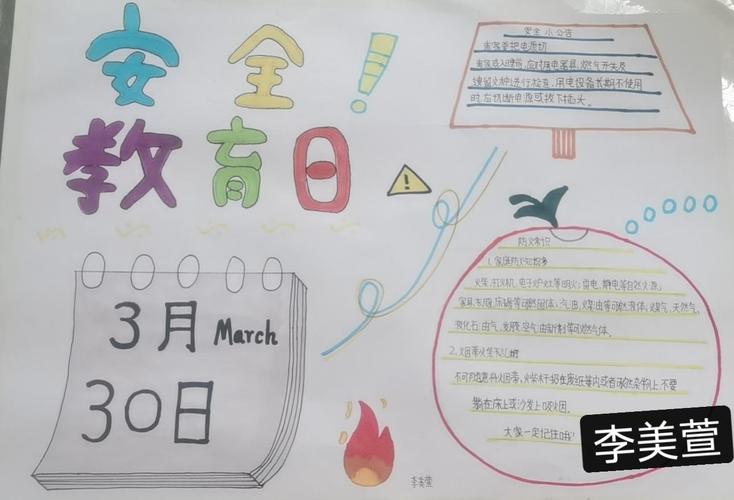 安全!
教育日
3月 March
30日
安全小公告
离家要把电源切
离家或入睡前,应对用电器具、燃气开关及
遗留火种进行检查,用电设备长期不使用
时,应切断电源或拔下插头。
防火常识
1.家庭防火知识多
火柴、打火机、电子炉灶等明火;雷电、静电等自然火源。
家具、衣物、床铺等可燃固体;汽油、煤油等可燃液体;煤气、天然气、
液化石油气、发胶、空气
等可燃气体。
2.烟蒂火柴不乱掷
不可随意将烟蒂、火柴杆扔在废纸篓内或者
杂物上,不要
躺在床上或沙发上吸烟。
大家一定记住哦!
李美萱
李美萱